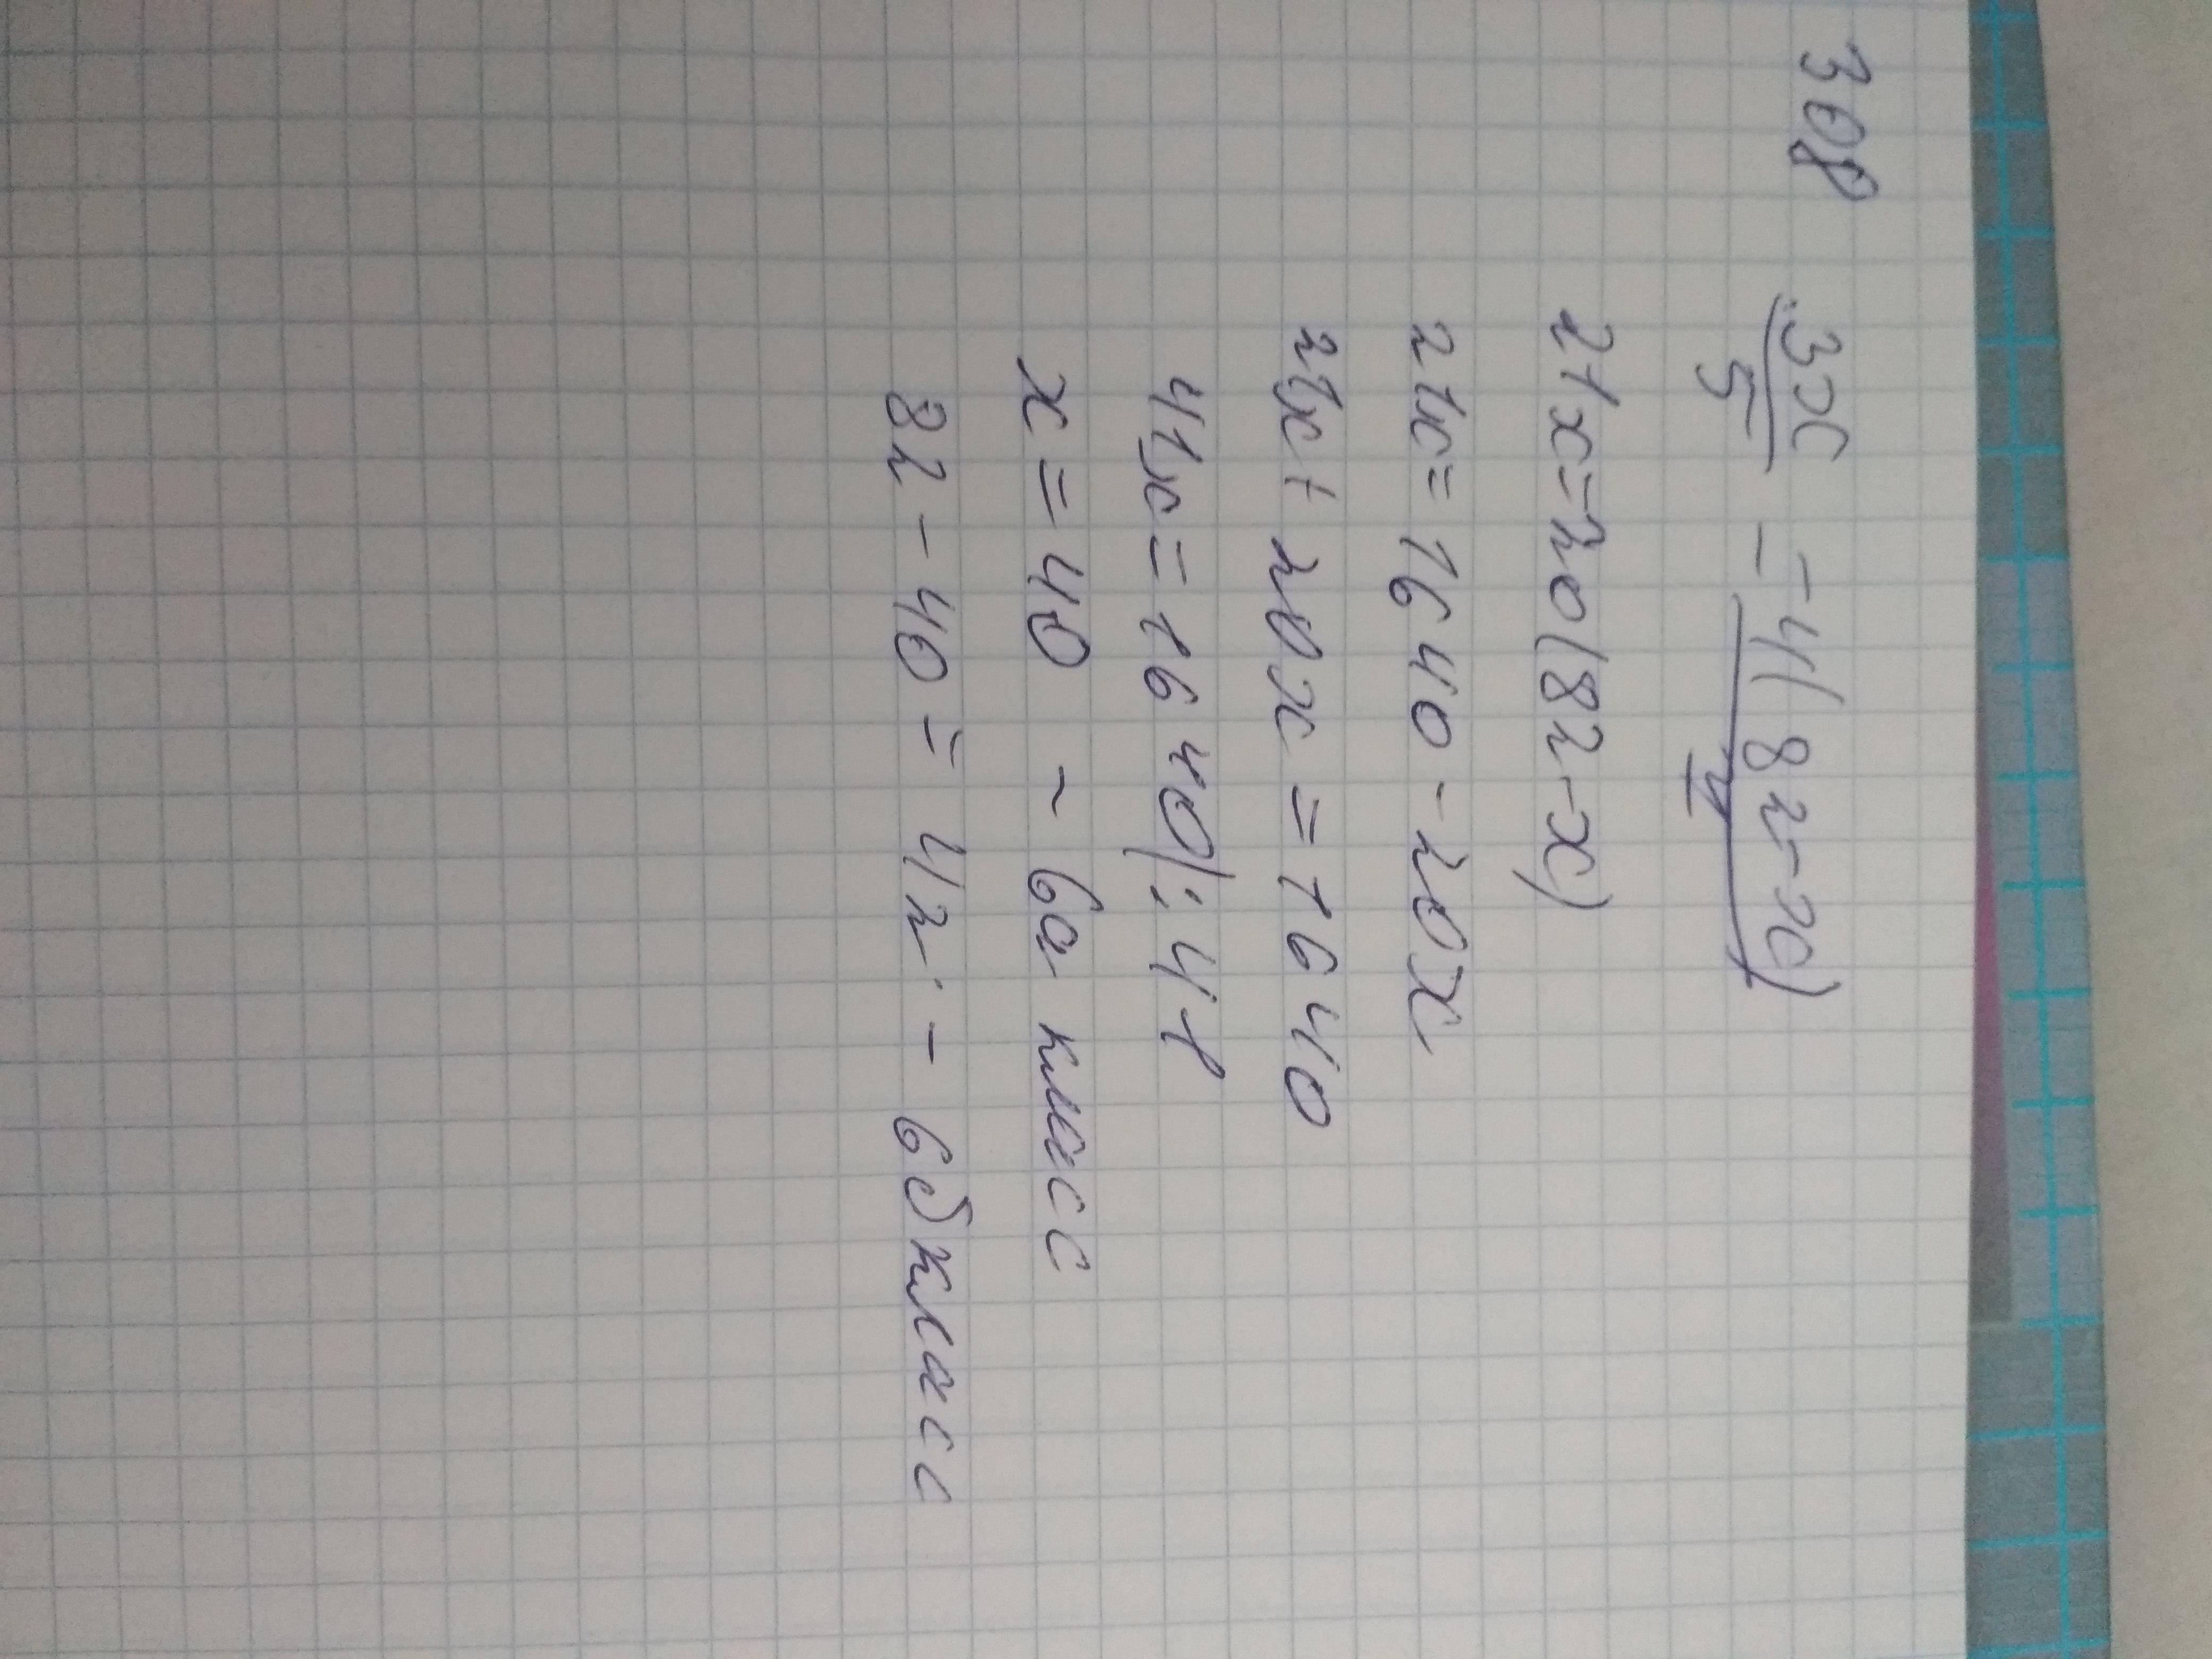 308
3x/5 = 4(82-x)/7
21x=20(82-x)
21x=1640-20x
21x+20x=1640
41x=1640|:41
x=40 - 6а класс
82-40=42.-6б класс